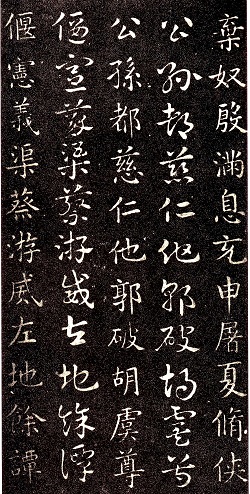 棄奴殷滿息充申屠夏脩俠
公孫都慈仁他郭破胡虞尊
公孫都慈仁他郭破胡虞尊
偃憲義渠蔡游威左地餘譚
偃憲義渠蔡游威左地餘譚